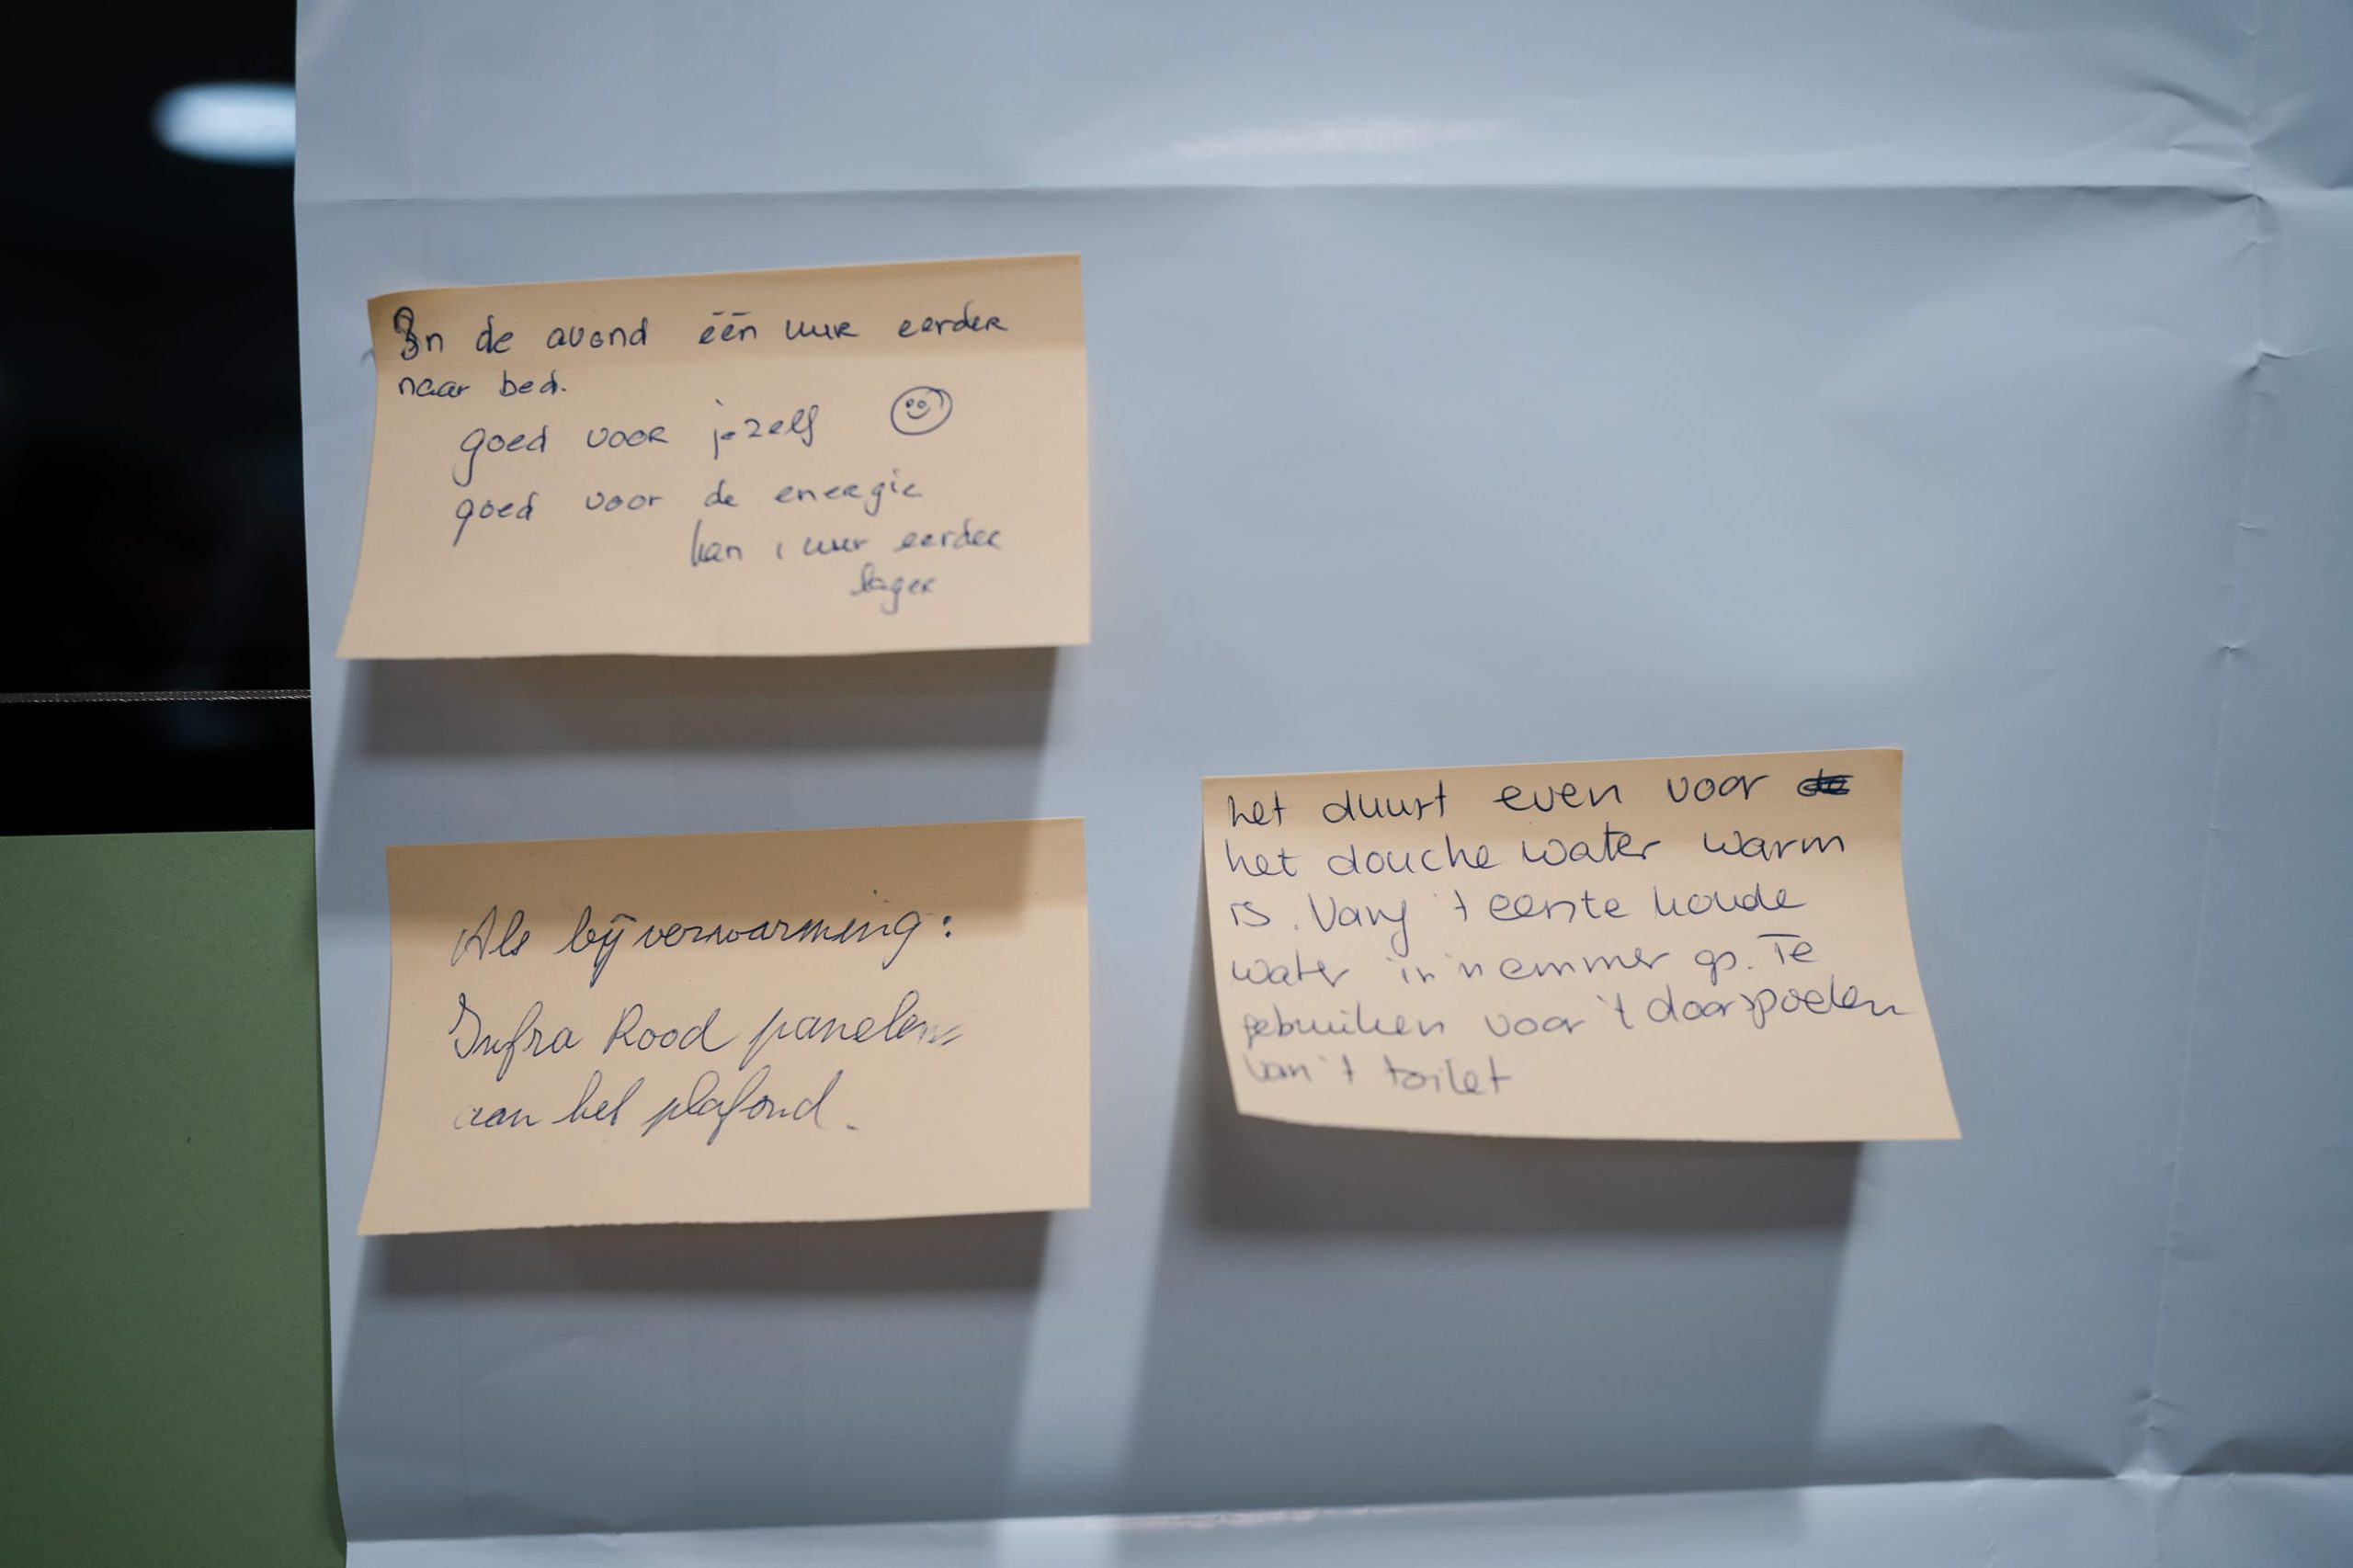 In de avond één uur eerder
naar bed.
goed voor jezelf
goed voor de energie
kan 1 uur eerder
lager
Als bijverwarming:
Infra Rood panelen
aan het plafond.
het duurt even voor
het douche water warm
is. Vang 't eerste koude
water in 'n emmer op. Te
gebruiken voor 't doorspoelen
van 't toilet